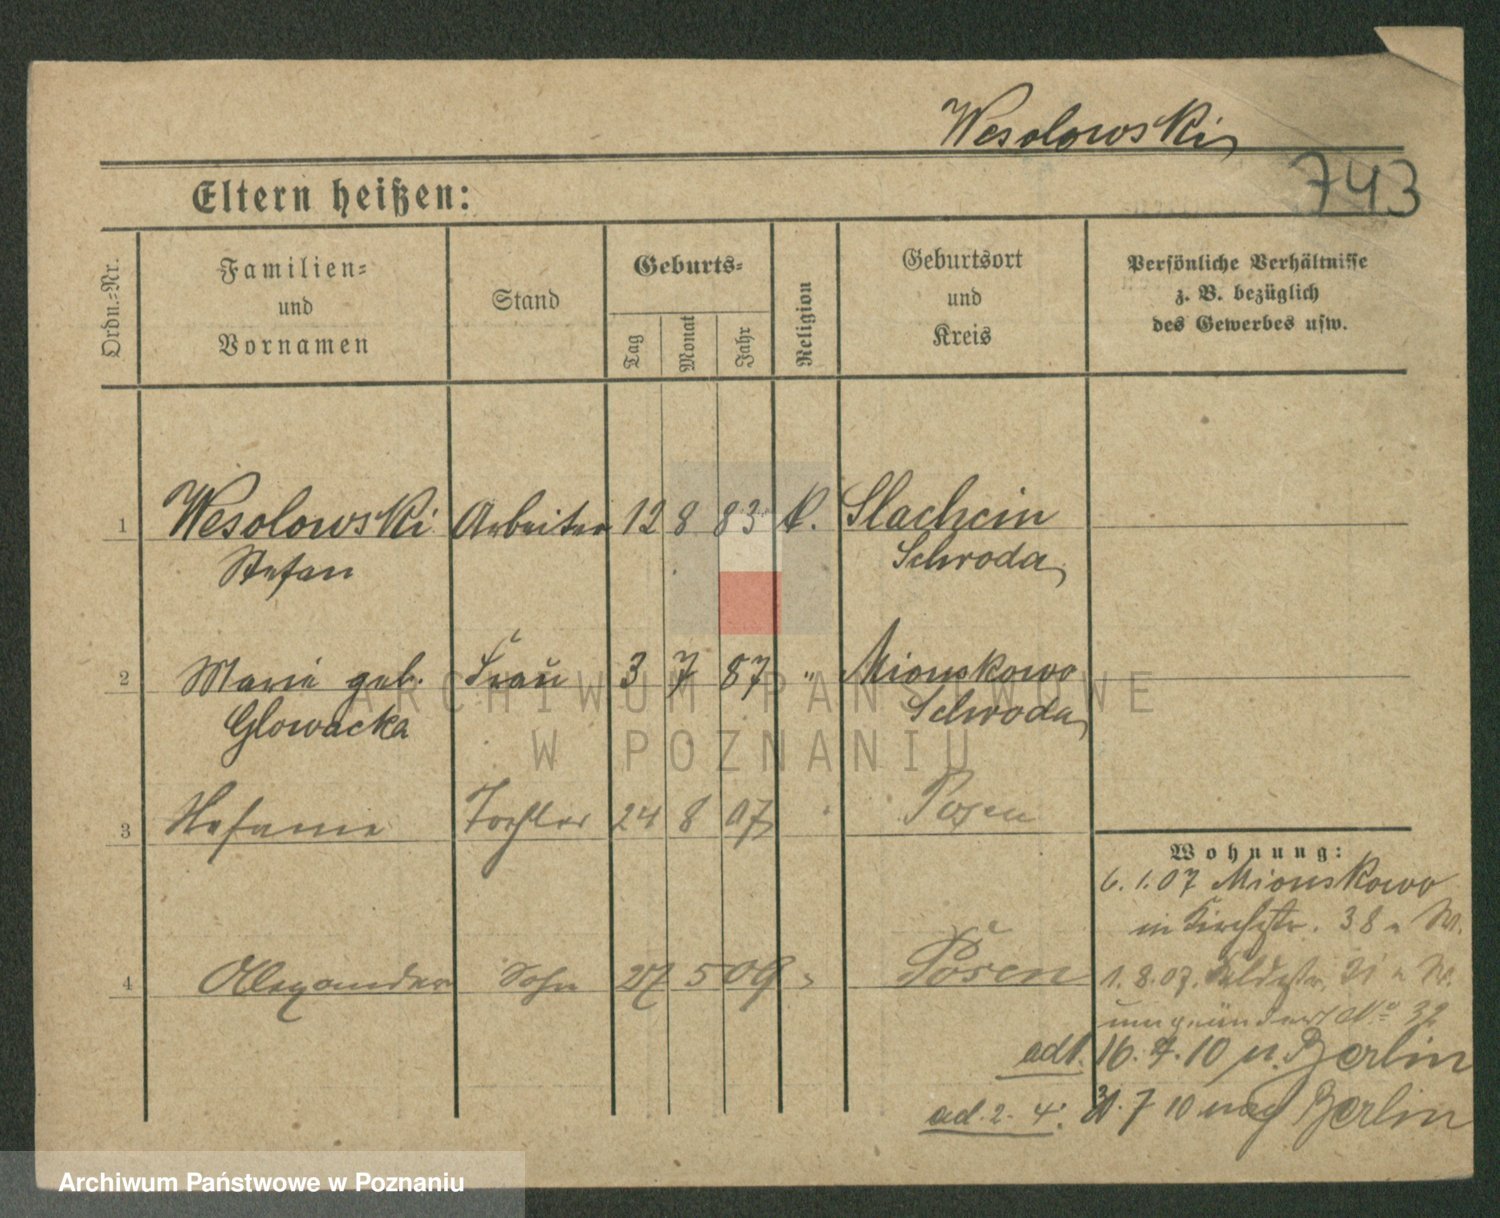 Wesolowski
743
Eltern heißen:
Ordn.-Nr.
Familien-
und
Vornamen
Stand
Geburts-
Tag
Monat
Jahr
Religion
Geburtsort
und
Kreis
Persönliche Verhältnisse
z. B. bezüglich
des Gewerbes usw.
1 Wesolowski Arbeiter 12 8 83 k. Slachcin
Stefan Schroda
2 Marie geb. Frau 3 7 87 " Mionskowo
Glowacka Schroda
3 Tochter 24 8 07 Posen
Wohnung:
6. 1. 07 Mionskowo
in Kirchstr. 38
4 Alexander Sohn 27 5 09 Posen 1. 8. 07.
No 32
ad 1. 16. 4. 10 n. Berlin
ad. 2-4. 31. 7 10 nach Berlin
ARCHIWUM PAŃSTWOWE
W POZNANIU
Archiwum Państwowe w Poznaniu